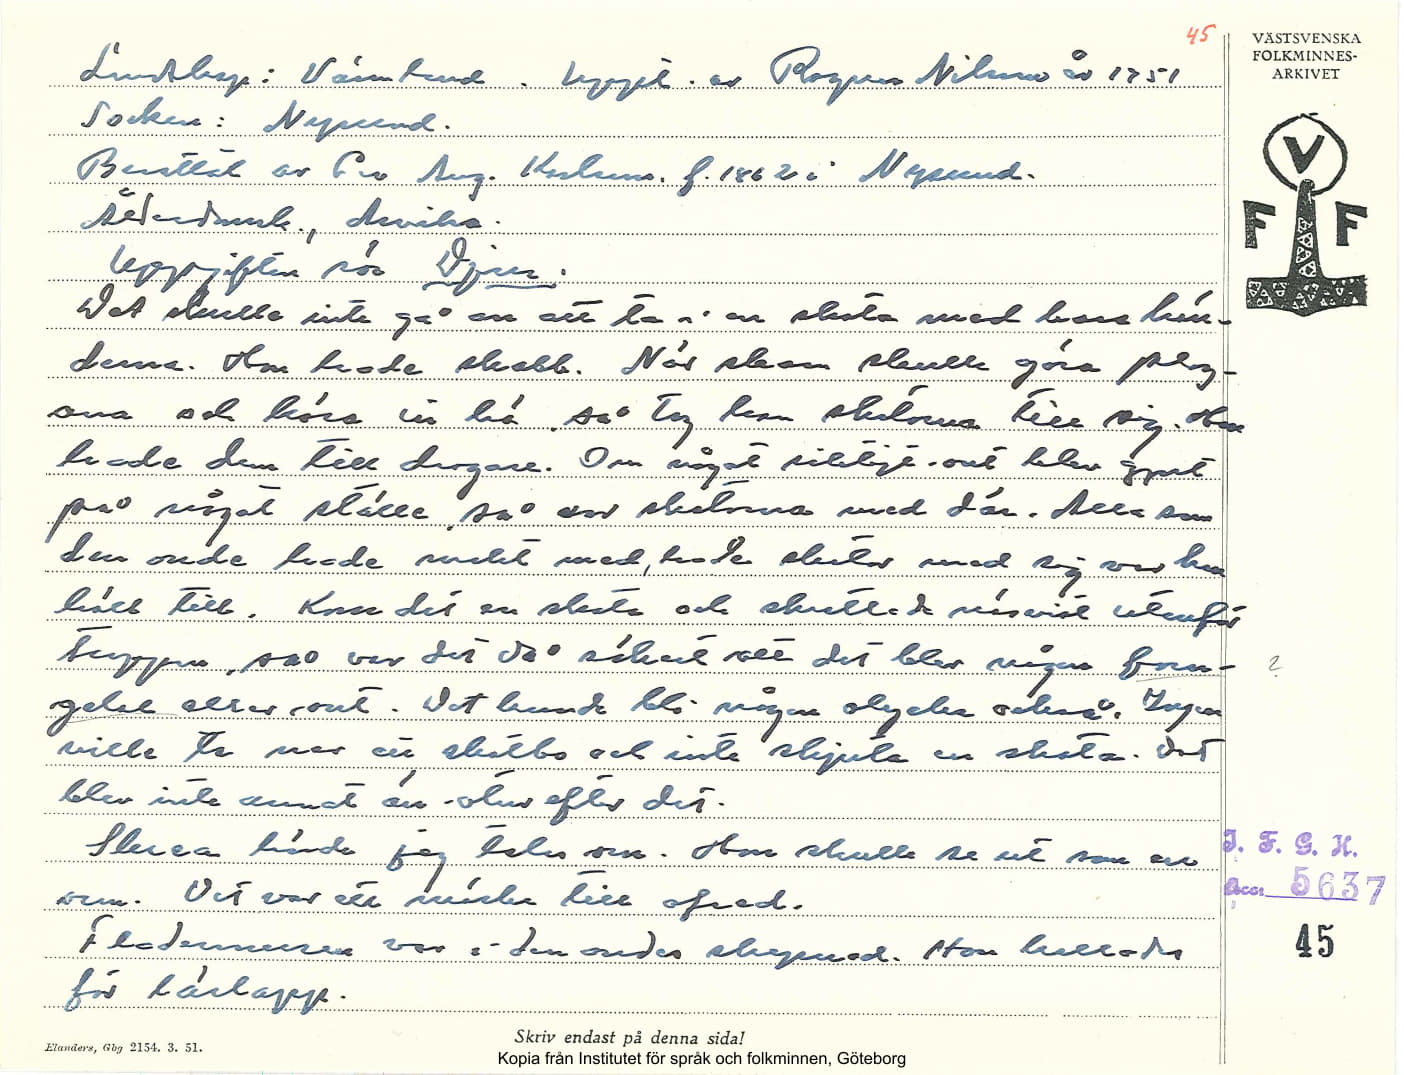 45
VÄSTSVENSKA
FOLKMINNES-
ARKIVET
V
F F
Landskap: Värmland. Uppt. av Ragnar Nilsson år 1951
Socken: Nysund.
Berättat av Aug. Karlsson. f. 1862 i Nysund.
Ålderdomsh., Arvika.
Uppgiften rör Djur.
Det skulle inte gå an att ta i en skata med bara hän-
derna. Hon hade skabb. När skam skulle göra plog-
arna och köra in hö, så tog han skatorna till sig. Han
hade dem till dragare. Om något riktigt ont blev gjort
på något ställe, så var skatorna med där. Alla som
den onde hade makt med, hade skator med sig var han
höll till. Kom det en skata och skrattade utanför
stugan, så var det då säkert att det blev någon
eller ont. Det kunde bli någon olycka också. Ingen
ville ta ner ett skatbo och inte skjuta en skata. Det
blev inte annat än otur efter det.
hörde jag talas om. Han skulle se ut som en
orm. Det var ett märke till ofred.
Flädermusen var i den ondes skepnad. Hon kallades
för lärlapp.
?
I. F. G. H.
Acc. 5637
45
Skriv endast på denna sida!
Elanders, Gbg 2154. 3. 51.
Kopia från Institutet för språk och folkminnen, Göteborg